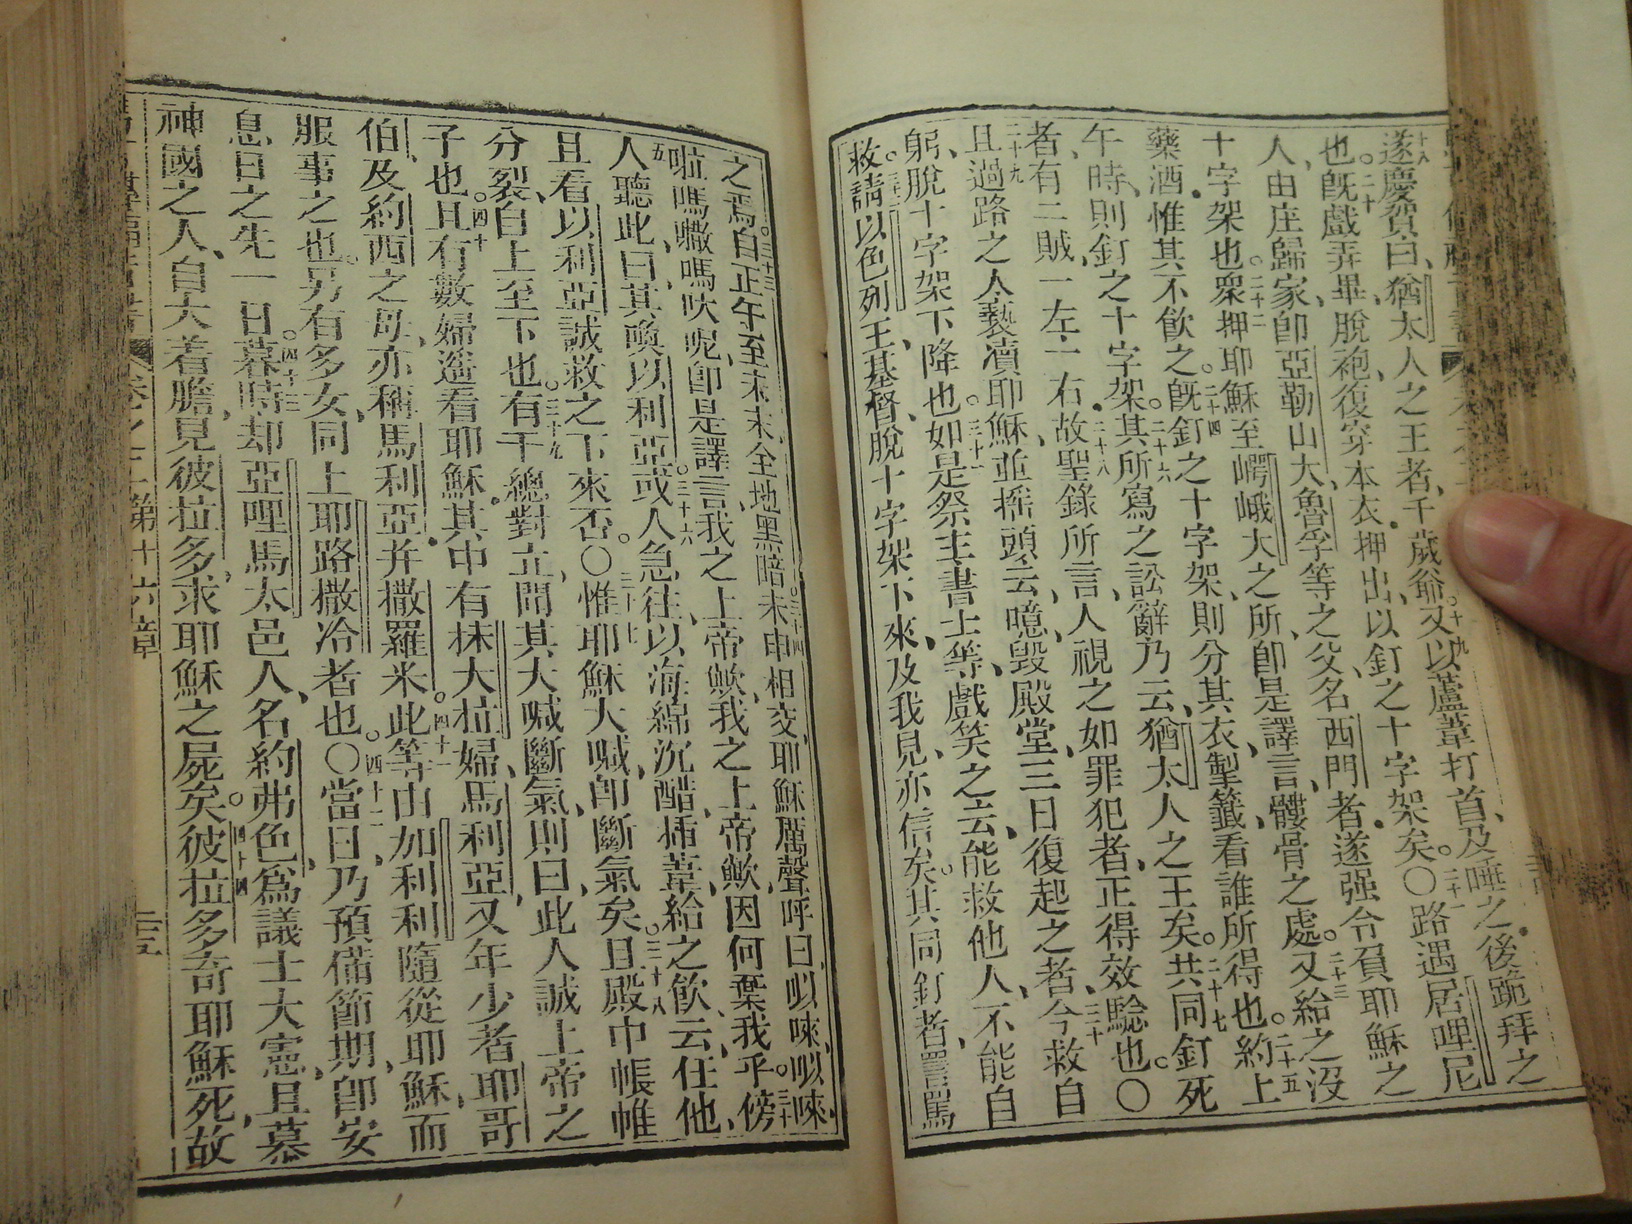 遂慶賀曰、猶太人之王者、千歲爺、十九又以蘆葦打首、及唾之、後跪拜之
也。二十旣戲弄畢、脫袍、復穿本衣、押出以釘之十字架矣。〇二十一路遇居哩尼
人、由庄歸家、卽亞勒山大、魯孚等之父、名西門者、遂强令負耶穌之
十字架也。二十二衆押耶穌至嶀峨大之所、卽是譯言、髏骨之處。二十三又給之沒
藥酒、惟其不飲之。二十四旣釘之十字架、則分其衣、掣籤看誰所得也。二十五約上
午時、則釘之十字架。二十六其所寫之訟辭乃云、猶太人之王矣。二十七共同釘死
者、有二賊、一左一右、二十八故聖錄所言、人視之如罪犯者、正得效驗也。〇
二十九且過路之人褻瀆耶穌、並搖頭云、噫、毀殿堂、三日復起之者、三十今救自
躬、脫十字架下降也。三十一如是祭主書士等、戲笑之云、能救他人、不能自
救。三十二請以色列王基督、脫十字架下來、及我見亦信矣。其同釘者、詈罵
之焉。三十三自正午至未末、全地黑暗。三十四未申相交、耶穌厲聲呼曰、以唻、以唻、
啦嗎𠿪嗎吠呢、卽是譯言、我之上帝歟、我之上帝歟、因何棄我乎。三十五傍
人聽此、曰、其喚以利亞。三十六或人急往、以海綿沉醋、插葦、給之飲、云、任他、
且看以利亞誠救之下來否。〇三十七惟耶穌大喊、卽斷氣矣。三十八且殿巾帳帷
分裂、自上至下也。三十九有千總對立、聞其大喊斷氣、則曰、此人誠上帝之
子也。四十且有數婦遙看耶穌、其中有抹大拉婦、馬利亞、又年少者耶哥
伯及約西之母、亦稱馬利亞、并撒羅米。四十一此等由加利利隨從耶穌、而
服事之也。另有多女、同上耶路撒冷者也。〇四十二當日乃預備節期、卽安
息日之先一日、暮時、四十三却亞哩馬太邑人、名約弗色、爲議士大憲、且慕
神國之人、自大着膽、見彼拉多、求耶穌之屍矣。四十四彼拉多奇耶穌死、故